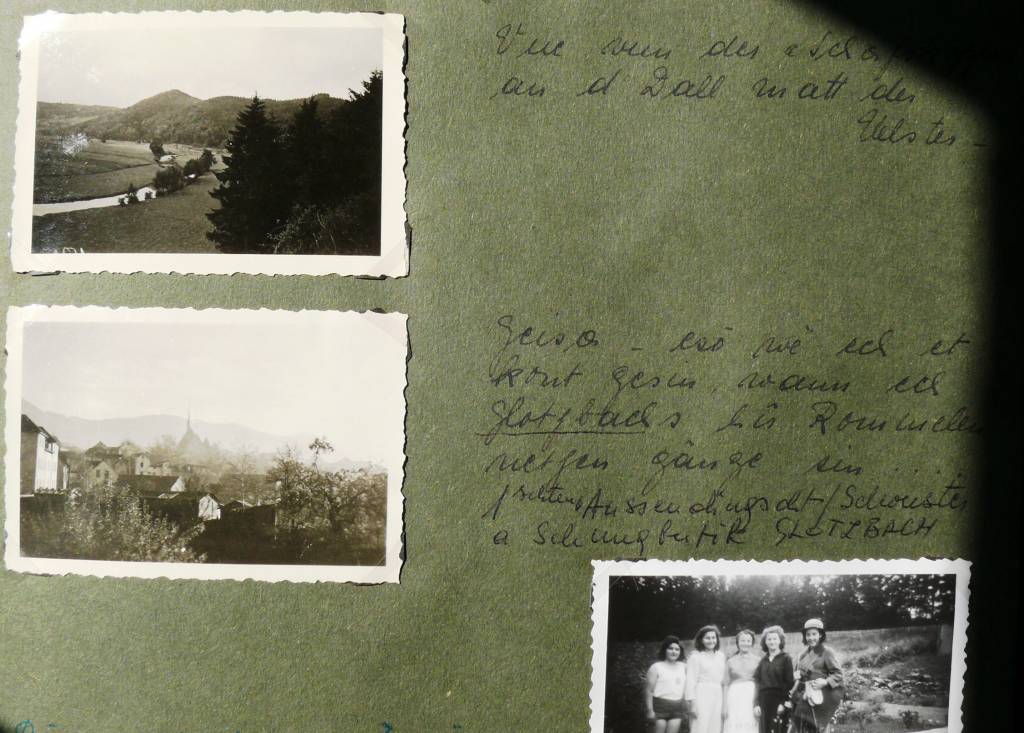 Vue vun der
an d Dall matt der
Ulster -
Geisa - esō wé ech et
kont gesin, wann ech
Glotzbachs hir Rommelen
netzen gänge sin ....
Aussendingscht / Schouster
a Schungbutik GLOTZBACH